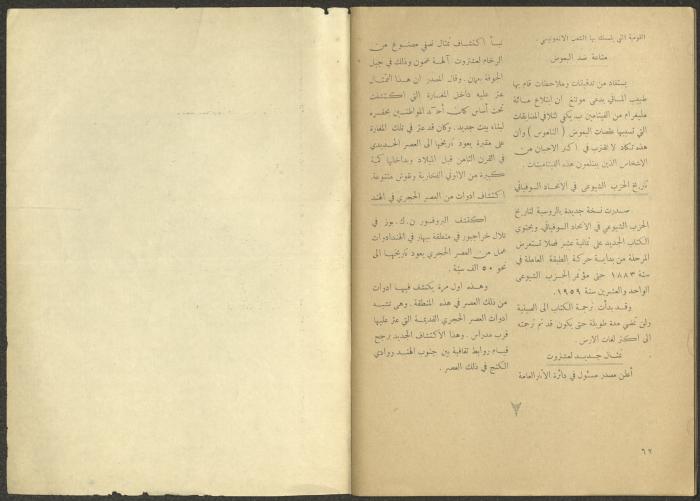 القومية التي يتمسك بها الشعب الاندونيسي .
مناعة ضد البعوض
يستفاد من تدقيقات وملاحظات قام بها
طبيب الماني يدعى موتنغ ان ابتلاع مائة
مليغرام من الفيتامين ب، يكفي لتلافي المضايقات
التي تسببها عقصات البعوض ( الناموس ) وان
هذه تكاد لا تقترب في اكثر الاحيان من
الاشخاص الذين يبتلعون هذه الفيتامينات .
تاريخ الحزب الشيوعي في الاتحاد السوفياتي
صدرت نسخة جديدة بالروسية لتاريخ
الحزب الشيوعي في الاتحاد السوفياتي. ويحتوي
الكتاب الجديد على ثمانية عشر فصلا تستعرض
المرحلة من بداية حركة الطبقة العاملة في
سنة ١٨٨٣ حتى مؤتمر الحزب الشيوعي
الواحد والعشرين سنة ١٩٥٩.
وقد بدأت ترجمة الكتاب الى الصينية
ولن تمضي مدة طويلة حتى يكون قد تم ترجمته
الى اكثر لغات الارض .
تمثال جديد لعشتروت
أعلن مصدر مسئول في دائرة الآثار العامة
نبأ اكتشاف تمثال نصفي مصنوع من
الرخام لعشتروت آلهة عمون وذلك في جبل
الجوفة بعمان. وقال المصدر ان هذا التمثال
عثر عليه داخل المغارة التي اكتشفت
تحت أساس كان أحد المواطنين يحفره
لبناء بيت جديد. وكان قد عثر في تلك المغارة
على مقبرة يعود تاريخها الى العصر الحديدي
في القرن الثامن قبل الميلاد وبداخلها كمية
كبيرة من الاواني الفخارية ونقوش متنوعة.
اكتشاف ادوات من العصر الحجري في الهند
اكتشف البروفسور ن.ك. بوز في
تلال خراجبور في منطقة بيهار في الهند ادوات
عمل من العصر الحجري يعود تاريخها الى
نحو ٥٠ الف سنة .
وهذه اول مرة يكتشف فيها ادوات
من ذلك العصر في هذه المنطقة . وهي تشبه
ادوات العصر الحجري القديمة التي عثر عليها
قرب مدراس . وهذا الاكتشاف الجديد يرجح
قيام روابط ثقافية بين جنوب الهند ووادي
الكنج في ذلك العصر .
٦٢